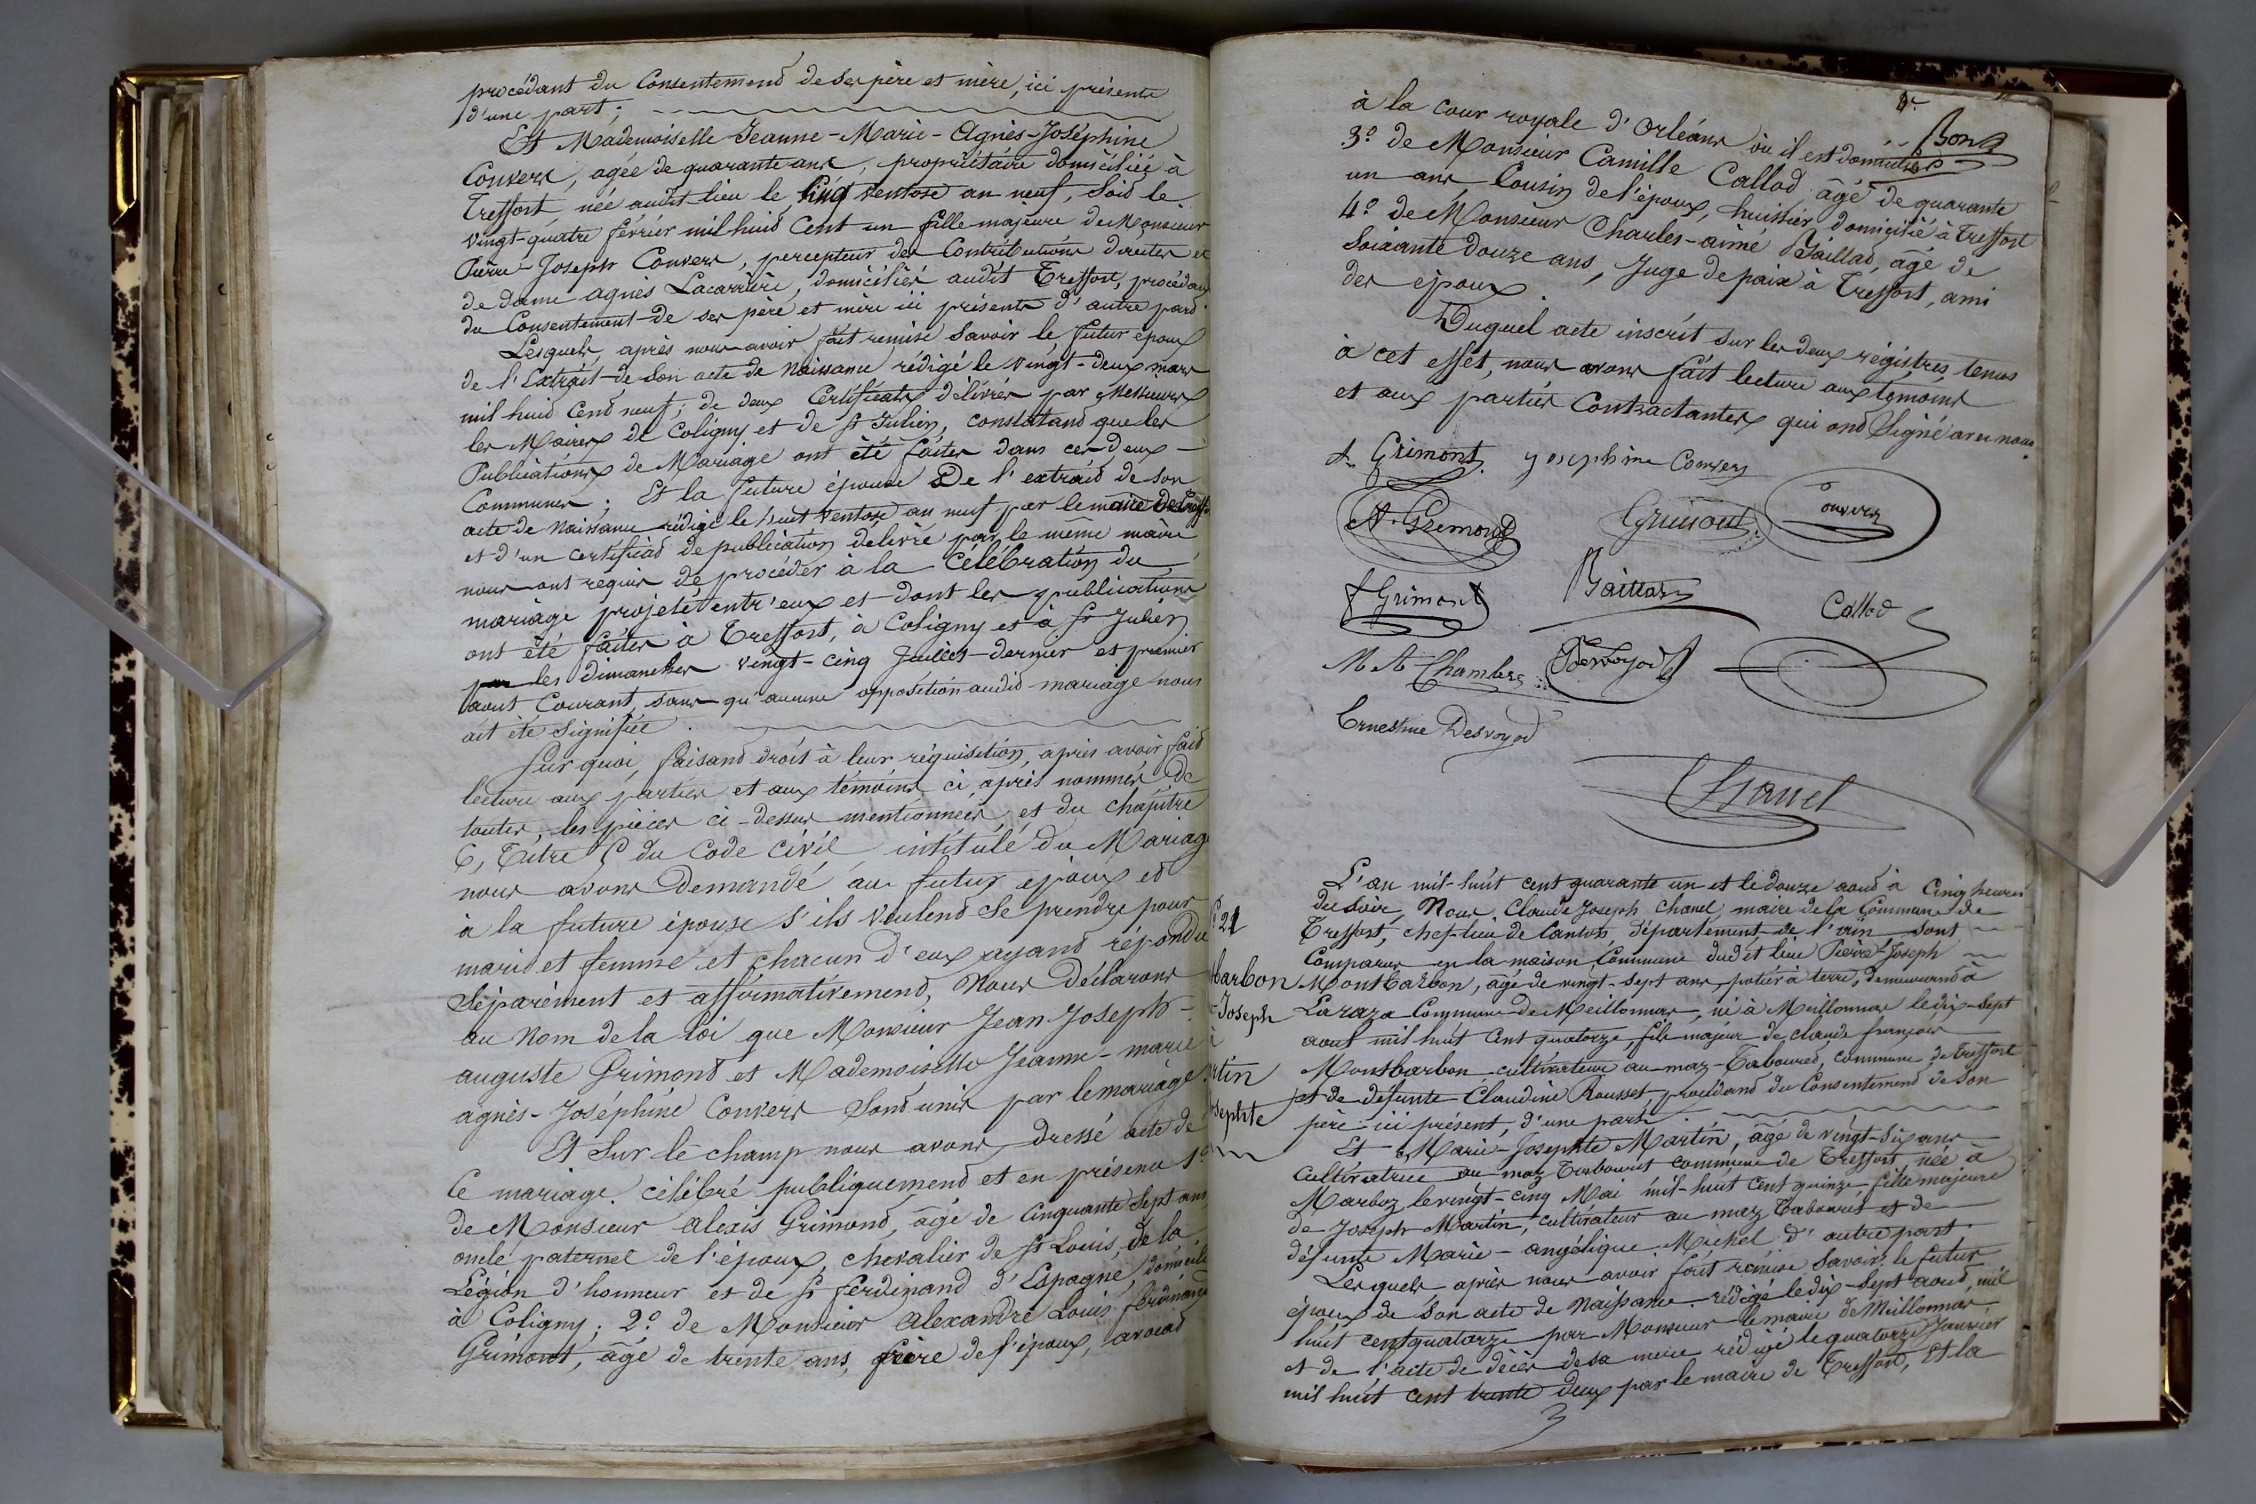 procédant du Consentement de ses père et mère, ici présents
d'une part;
Et Mademoiselle Jeanne-Marie-Agnès-Joséphine
Convers, agée de quarante ans, propriétaire domiciliée à
Treffort, née audit lieu le cinq ventose an neuf, soit le
vingt-quatre février mil huit Cent un fille majeure de Monsieur
Pierre-Joseph Convers, percepteur des Contributions directes et
de dame agnes Lacarrière, domiciliés audit Treffort, procédant
du Consentement de ses père et mère ici présents d'autre part.
Lesquels, après nous avoir fait remise savoir le futur époux
de l'Extrait de son acte de Naissance rédigé le vingt-deux mars
mil huit Cent neuf; de deux Certificats délivrés par Messieurs
les Maires de Coligny et de St Julien, constatant que les
Publications de Mariage ont été faites dans ces deux
Communes; Et la future épouse De l'extrait de son
acte de Naissance rédigé le huit ventose an neuf par le maire de Treffort
et d'un certificat de publication délivré par le même maire
nous ont requis de procéder à la Célébration du
mariage projeté entr'eux et dont les publications
ont été faites à Treffort, à Coligny et à St Julien
les dimanches vingt-cinq Juillet dernier et premier
aout Courant, sans qu'aucune opposition audit mariage nous
ait été signifiée.
Sur quoi, faisant droit à leur réquisition, après avoir fait
lecture aux parties et aux témoins ci après nommés de
toutes les pièces ci-dessus mentionnées et du chapitre
6, Titre 5 du Code Civil intitulé du Mariage
nous avons Demandé au futur époux et
à la future épouse s'ils veulent se prendre pour
mari et femme et chacun d'eux ayant répondu
Séparément et affirmativement, Nous Déclarons
au Nom de la loi que Monsieur Jean-Joseph-
auguste Grimont et Mademoiselle Jeanne-marie
agnès-Joséphine Convers sont unis par le mariage
Et sur le champ nous avons dressé acte de
Ce mariage célébré publiquement et en présence 1°
de Monsieur Alexis Grimont, âgé de Cinquante Sept ans
oncle paternel de l'époux, chevalier de St Louis, de la
Légion d'honneur et de St ferdinand d'Espagne, domicilié
à Coligny; 2° de Monsieur Alexandre Louis ferdinand
Grimont, âgé de trente ans, frère de l'époux, avocat
à la cour royale d'Orléans où il est domicilié
3° de Monsieur Camille Callod âgé de quarante
un ans, Cousin de l'époux, huissier domicilié à Treffort
4° de Monsieur Charles-aimé Baillat, âgé de
soixante douze ans, Juge de paix à Treffort, ami
des époux.
Duquel acte inscrit sur les deux régistres tenus
à cet effet, nous avons fait lecture aux témoins
et aux parties Contractantes qui ont Signé avec nous.
A. Grimont. Josephine Convers
A. Grimont Grimont Convers
f Grimont Baillat Callod
M A Chambre Desvoyod
Ernestine Desvoyod
Chanel
L'an mil-huit cent quarante un et le douze aout à Cinq heures
du Soir, Nous, Claude Joseph Chanel, maire de la Commune de
Treffort, chef-lieu de Canton département de l'ain sont
Comparus en la maison Commune dudit lieu Pierre-Joseph
Montbarbon, âgé de vingt-sept ans, potier à terre, demeurant à
Laraza Commune de Meillonnas, né à Meillonnas le dix-sept
aout mil huit Cent quatorze, fils majeur de claude françois
Montbarbon cultivateur au maz-Tabouret, commune de Treffort
et de défunte Claudine Rousset, procédant du Consentement de son
père ici présent, d'une part.
Et Marie-Josephte Martin, âgé de vingt-six ans
Cultivatrice au maz Tabouret commune de Treffort née à
Marboz le vingt-cinq Mai mil-huit Cent quinze fille majeure
de Joseph Martin, cultivateur au maz Tabouret et de
défunte Marie-angélique Michel d'autre part.
Lesquels, après nous avoir fait remise Savoir: le futur
époux de son acte de Naissance rédigé le dix-sept aout mil
huit cent quatorze par Monsieur le maire de Meillonnas
et de l'acte de décès de sa mère rédigé le quatorze Janvier
mil huit cent trente deux par le maire de Treffort, Et la
21
barbon
Joseph
rtin
osephte